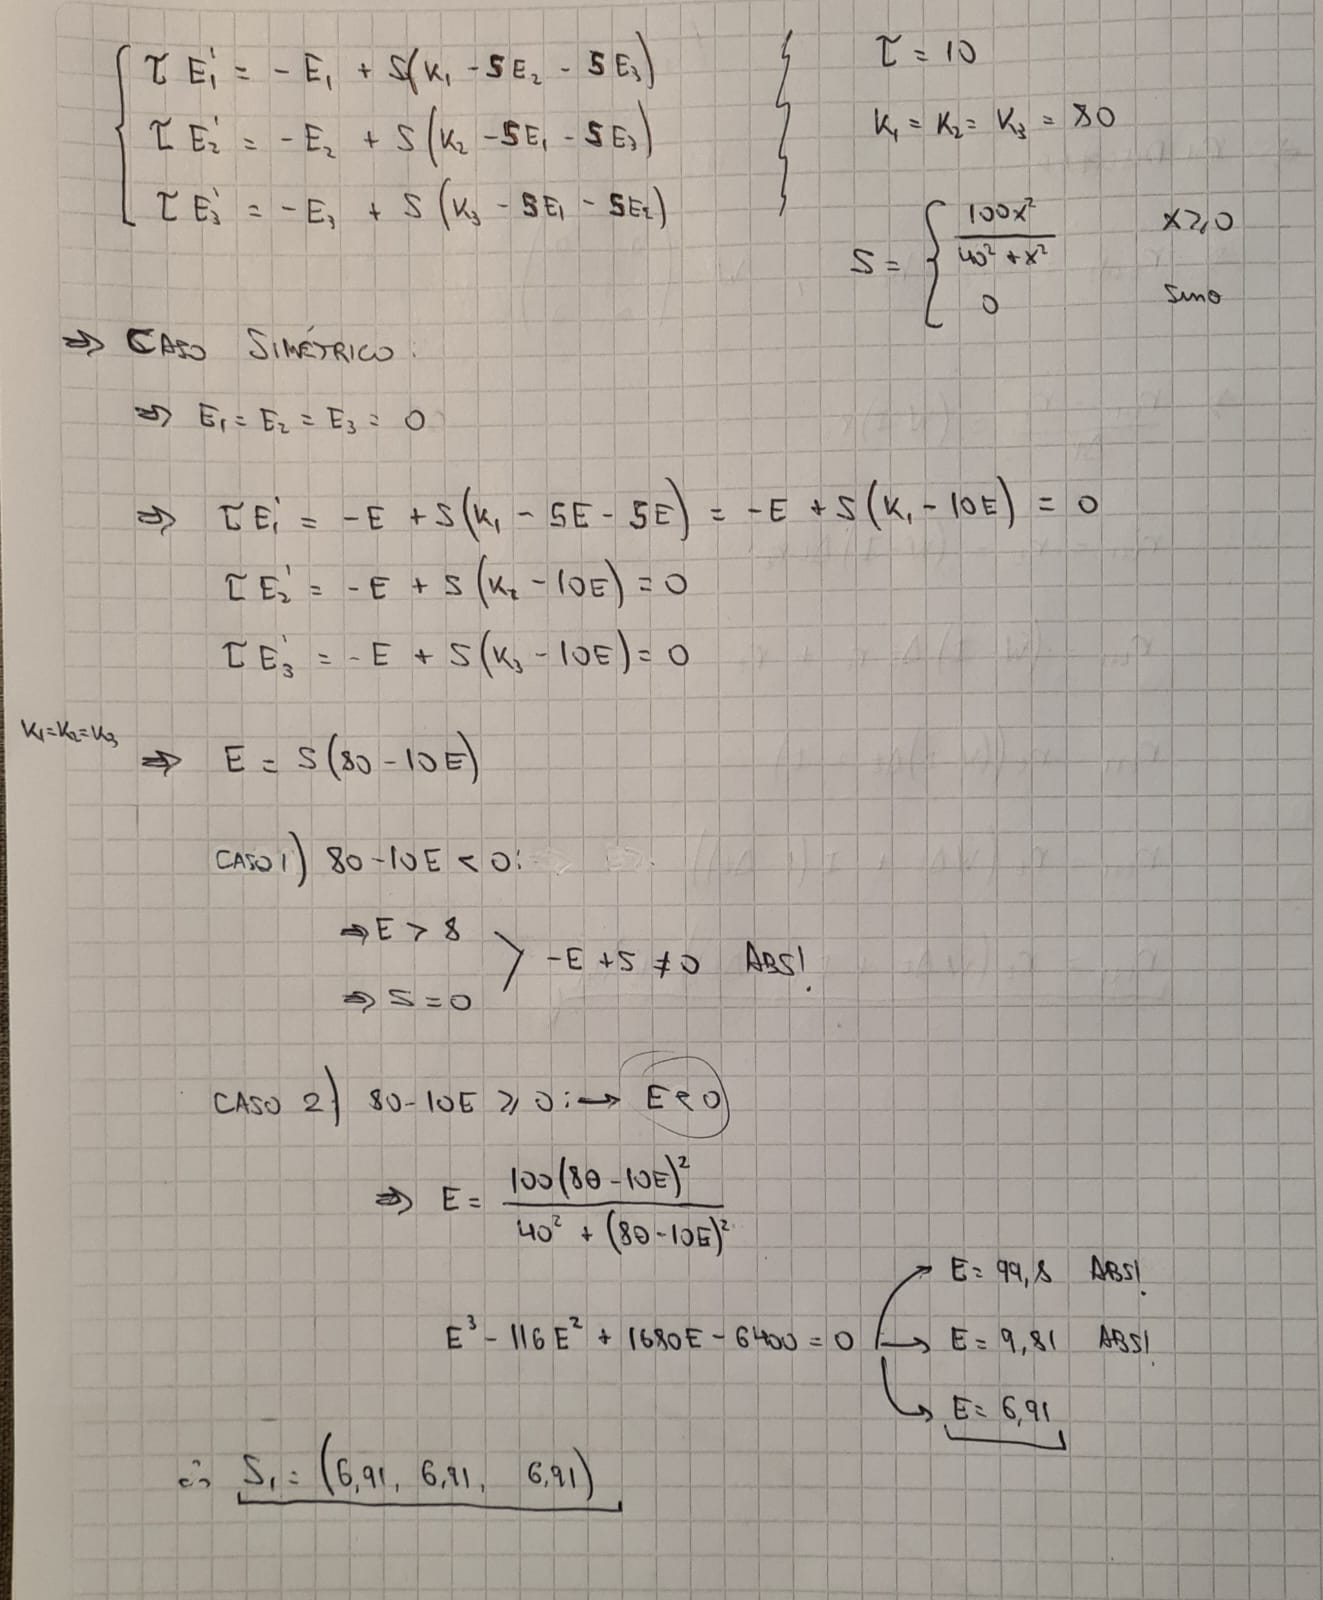 τ E₁' = - E₁ + S(K₁ - 5E₂ - 5E₃)
τ E₂' = - E₂ + S(K₂ - 5E₁ - 5E₃)
τ E₃' = - E₃ + S(K₃ - 5E₁ - 5E₂)
τ = 10
K₁ = K₂ = K₃ = 80
S = { 100x² / 40² + x² x ≥ 0
0 sino
⇒ CASO SIMÉTRICO:
⇒ E₁ = E₂ = E₃ = 0
⇒ τ E₁' = -E + S(K₁ - 5E - 5E) = -E + S(K₁ - 10E) = 0
τ E₂' = -E + S(K₂ - 10E) = 0
τ E₃' = -E + S(K₃ - 10E) = 0
K₁=K₂=K₃ ⇒ E = S(80 - 10E)
CASO 1) 80 - 10E < 0:
⇒ E > 8
-E + S ≠ 0 ABS!
⇒ S = 0
CASO 2) 80 - 10E ≥ 0: → E < 0
⇒ E = 100(80 - 10E)² / 40² + (80 - 10E)²
E = 99,8 ABS!
E³ - 116E² + 1680E - 6400 = 0 → E = 9,81 ABS!
E = 6,91
∴ S₁ = (6,91, 6,91, 6,91)